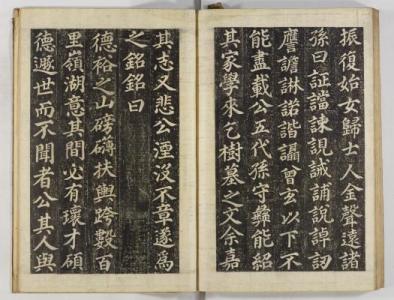 振復始女歸士人金聲遠諸
孫曰証讜諫誢誠誧說諄訒
譍譫諃諾諧讘曾玄以下不
能盡載公五代孫守彝能紹
其家學來乞樹墓之文余嘉
其志又悲公湮沒不章遂為
之銘銘曰
德裕之山磅礴扶輿跨數百
里嶺湖意其間必有瓌才碩
德遯世而不聞者公其人與